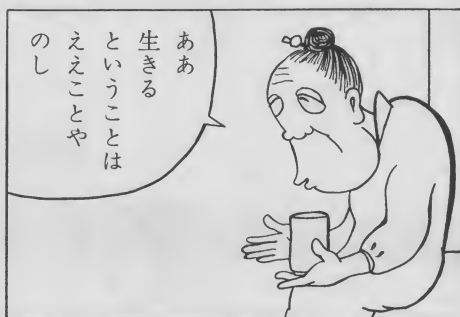 ああ
生きる
ということは
ええことや
のし